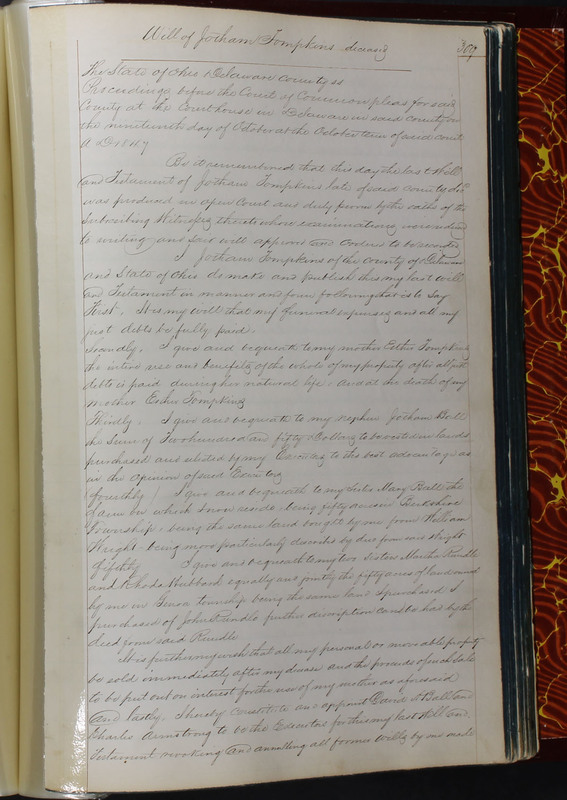 Will of Jotham Tompkins deceased 369
The State of Ohio Delaware County ss
Proceedings before the Court of Common pleas for said
County at the Courthouse in Delaware in said County on
the nineteenth day of October at the October term of said court
A D 1847
Be it remembered that this day the last Will
and Testament of Jotham Tompkins late of said County decd
was produced in open Court and duly proven by the oaths of the
subscribing Witnesses thereto whose examinations were reduced
to writing and said will approved and ordered to be recorded
I Jotham Tompkins of the County of Delaware
and State of Ohio do make and publish this my last will
and Testament in manner and form following that is to say
First. It is my will that my funeral expenses and all my
just debts be fully paid.
Secondly. I give and bequeath to my mother Esther Tompkins
the entire use and benefits of the whole of my property after all just
debts is paid during her natural life. And at the death of my
mother Esther Tompkins
Thirdly. I give and bequeath to my nephew Jotham Ball
the sum of Two hundred and fifty Dollars to be vested in lands
purchased and selected by my Executors to the best advantage as
in the opinion of said Executors
fourthly I give and bequeath to my Sister Mary Ball the
farm on which I now reside, being fifty acres in Berkshire
Township, being the same land bought by me from William
Wright being more particularly described by deed from said Wright
fifthly I give and bequeath to my two Sisters Martha Rundle
and Rhoda Hubbard equally and jointly the fifty acres of land owned
by me in Genoa township being the same land I purchased I
purchased of John Rundle further discription can be had by the
deed from said Rundle
It is further my wish that all my personal or moveable property
be sold immediately after my decease and the proceeds of such sale
to be put out on interest for the use of my mother as aforesaid
And lastly. I hereby constitute and appoint David Ball and
Charles Armstrong to be the Executors for this my last Will and
Testament revoking and annulling all former wills by me made